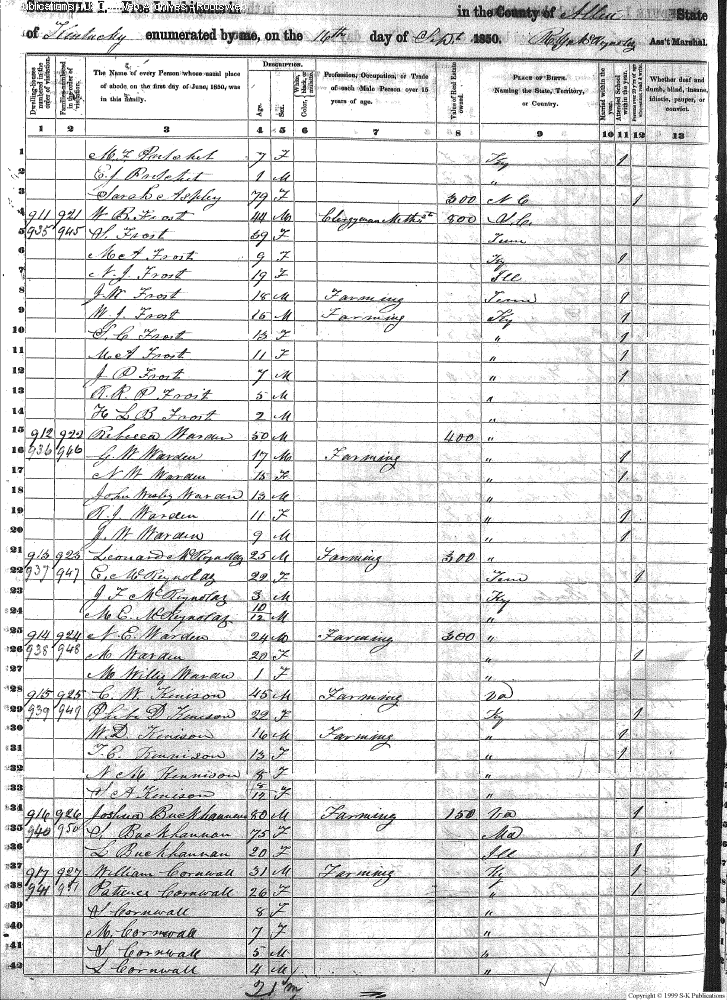 in the County of Allen State
of Kentucky enumerated by me, on the 16th day of Sept 1850. Ass't Marshal.
Dwelling-houses numbered in the order of visitation.
Families numbered in the order of visitation.
The Name of every Person whose usual place of abode on the first day of June, 1850, was in this family.
DESCRIPTION.
Age.
Sex.
Color, White, black, or mulatto.
Profession, Occupation, or Trade of each Male Person over 15 years of age.
Value of Real Estate owned.
PLACE OF BIRTH. Naming the State, Territory, or Country.
Married within the year.
Attended School within the year.
Whether deaf and dumb, blind, insane, idiotic, pauper, or convict.
1 2 3 4 5 6 7 8 9 10 11 12 13
1 M. F. Pritchet 7 F Ky 1
2 E. J. Pritchet 1 M "
3 Sarah Aspley 79 F 300 N C 1
4 911 921 W B Frost 44 M Clergyman Methst 800 N.C.
5 935 945 S. Frost 39 F Tenn
6 M A Frost 9 F Ky 1
7 N. J. Frost 19 F Ill
8 J. K Frost 18 M Farming Tenn 1
9 W. J. Frost 16 M Farming Ky 1
10 S. C Frost 13 F " 1
11 M A Frost 11 F " 1
12 J P Frost 7 M " 1
13 R. R. P Frost 5 M "
14 H L B Frost 2 M "
15 912 922 Rebecca Warden 50 M 400 "
16 936 946 G. W Warden 17 M Farming " 1
17 N W Warden 15 F " 1
18 John Wesley Warden 13 M "
19 R. J Warden 11 F " 1
20 J. W Warden 9 M " 1
21 913 923 Leonard McReynolds 25 M Farming 300 "
22 937 947 E. McReynolds 22 F Tenn 1
23 J F McReynolds 3 M Ky
24 M E. McReynolds 10/12 M "
25 914 924 N. E. Warden 24 M Farming 300 "
26 938 948 M Warden 20 F " 1
27 M Willis Warden 1 F "
28 915 925 C. W Kenison 45 M Farming Va
29 939 949 Phibe D Kenison 29 F Ky 1
30 W. D Kenison 16 M Farming " 1
31 T. C. Kennison 13 F " 1
32 N M Kennison 8 F "
33 S A Kenison 8/12 F "
34 916 926 Joshua Buckhannan 80 M Farming 150 Va 1
35 940 950 S. Buckhannan 75 F Md
36 L Buckhannan 20 F Ill 1
37 917 927 William Cornwall 31 M Farming Ky 1
38 941 Patience Cornwall 26 F " 1
39 S Cornwall 8 F "
40 M. Cornwall 7 F "
41 S Cornwall 5 M "
42 S Cornwall 4 M "
21 m
Copyright © 1999 S-K Publications